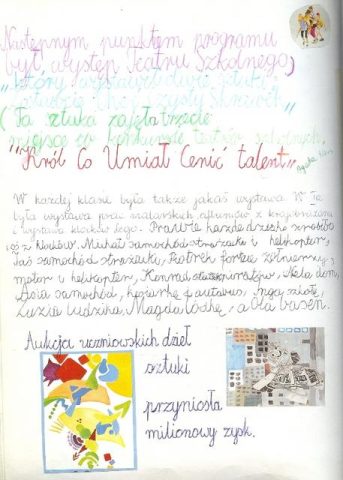 Następnym punktem programu
był występ Teatru Szkolnego,
który wystawił dwie sztuki:
(Ta sztuka zajęła trzecie
miejsce w konkursie teatrów szkolnych.
"Król Co Umiał Cenić talent"
W każdej klasie była także jakaś wystawa. W Ia
była wystawa prac malarskich,
i wystawa klocków Lego. Prawie każde dziecko zrobiło
coś z klocków. Michał samochód strażacki i helikopter,
Jaś samochód strażacki, Piotrek fortecę, żołnierzy,
motor i helikopter, Konrad statek piratów, Nela dom,
Asia samochód, koparkę i autobus, Inga
Zuzia ludzika, Magda łódkę, a Ola basen.
Aukcja uczniowskich dzieł
sztuki
przyniosła
milionowy zysk.